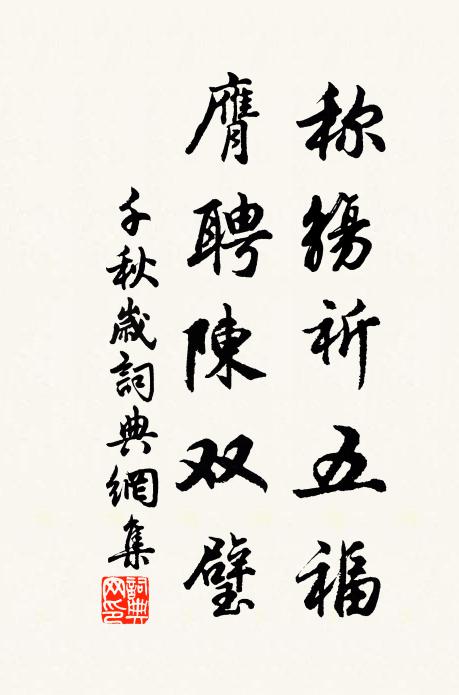 称觞祈五福
膺聘陳双璧
千秋歲詞典網集
詞典网印